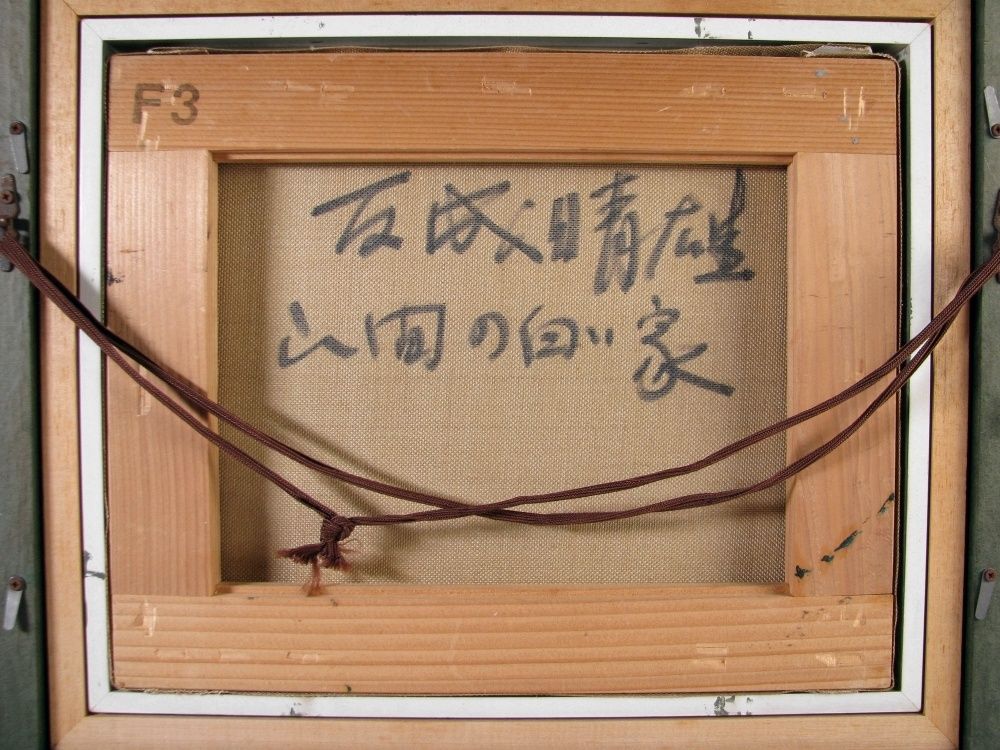 F3
晴雄
山間の白い家